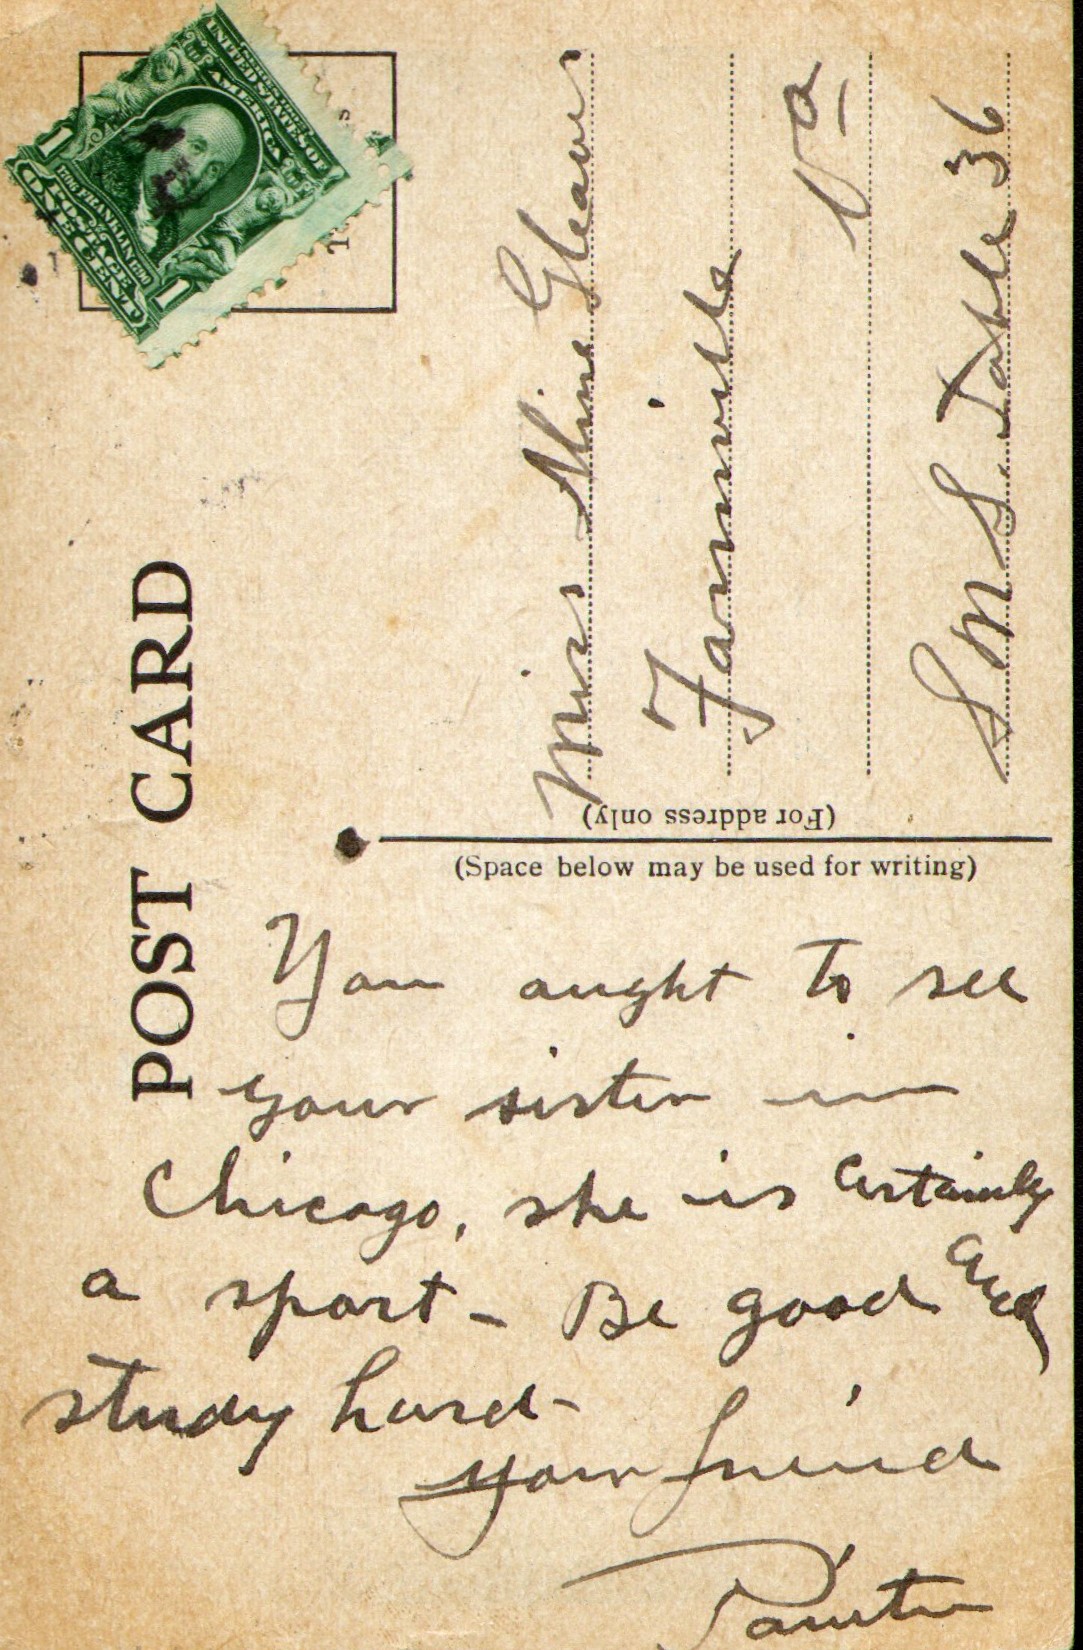 SERIES OF 1902
UNITED STATES OF
AMERICA
1706 FRANKLIN 1790
POSTAGE
1 ONE CENT 1
POST CARD
Miss Aline Gleaves
Farmville
Va
S N S. Table 36
(For address only)
(Space below may be used for writing)
You aught to see
your sister in
Chicago, she is certainly
a sport - Be good and
study hard -
your friend